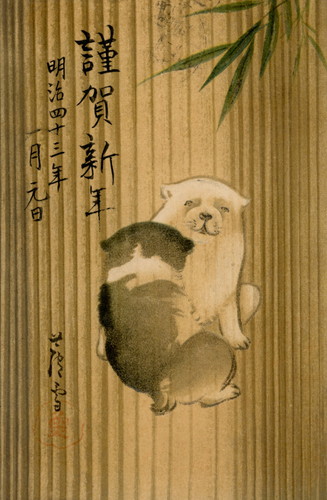 謹賀新年
明治四十三年
一月元日
蘆雪